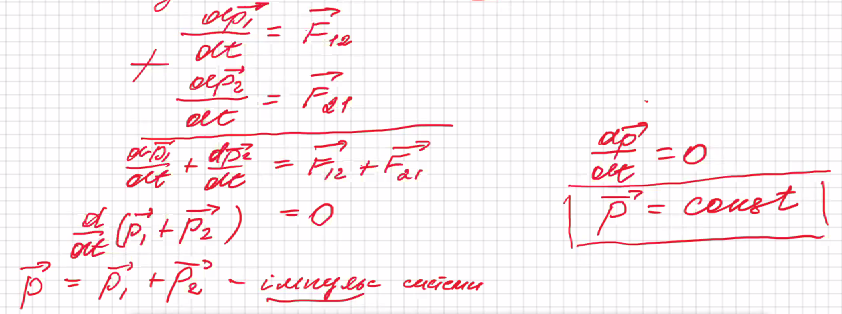 dp⃗₁/dt = F⃗₁₂
+
dp⃗₂/dt = F⃗₂₁
dp⃗₁/dt + dp⃗₂/dt = F⃗₁₂ + F⃗₂₁
d/dt (p⃗₁ + p⃗₂) = 0
p⃗ = p⃗₁ + p⃗₂ – імпульс системи
dp⃗/dt = 0
p⃗ = const